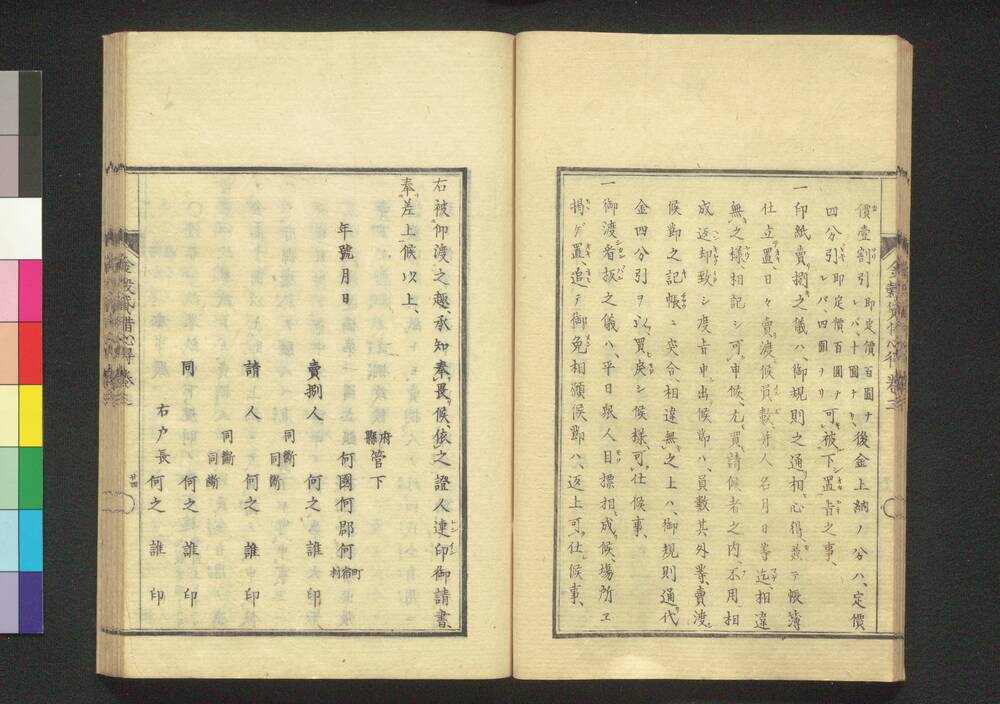 價壹割引即定價百圓ナ後金上納ノ分ハ、定價
四分引即定價百圓ナレバ、四圓ヲリ可被下置旨之事、
一印紙賣捌之儀ハ、御規則之通相心得、兼テ帳簿
仕立置、日々賣渡候員數、并人名月日等迄、相違
無之様、相記シ可申候、尤買請候者之内、不用相
成返却致シ度旨申出候節ハ、員數其外等、賣渡
候節之記帳ニ突合、相違無之上ハ、御規則通代
金四分引ヲ以、買戻シ候様、可仕候事、
一御渡者板之儀ハ、平日眾人目標相成候場所エ
掲ゲ置、追テ御免相願候節ハ、返上可仕候事、
右被仰渡之趣、承知奉畏候、依之證人連印御請書
奉差上候以上、
年號月日
府縣管下
何國何郡何町宿村
賣捌人 何之誰印
同斷
請人 同斷 何之誰印
同 同斷 何之誰印
同斷
右戸長 何之誰印
金穀貸借心得 卷三
廿四